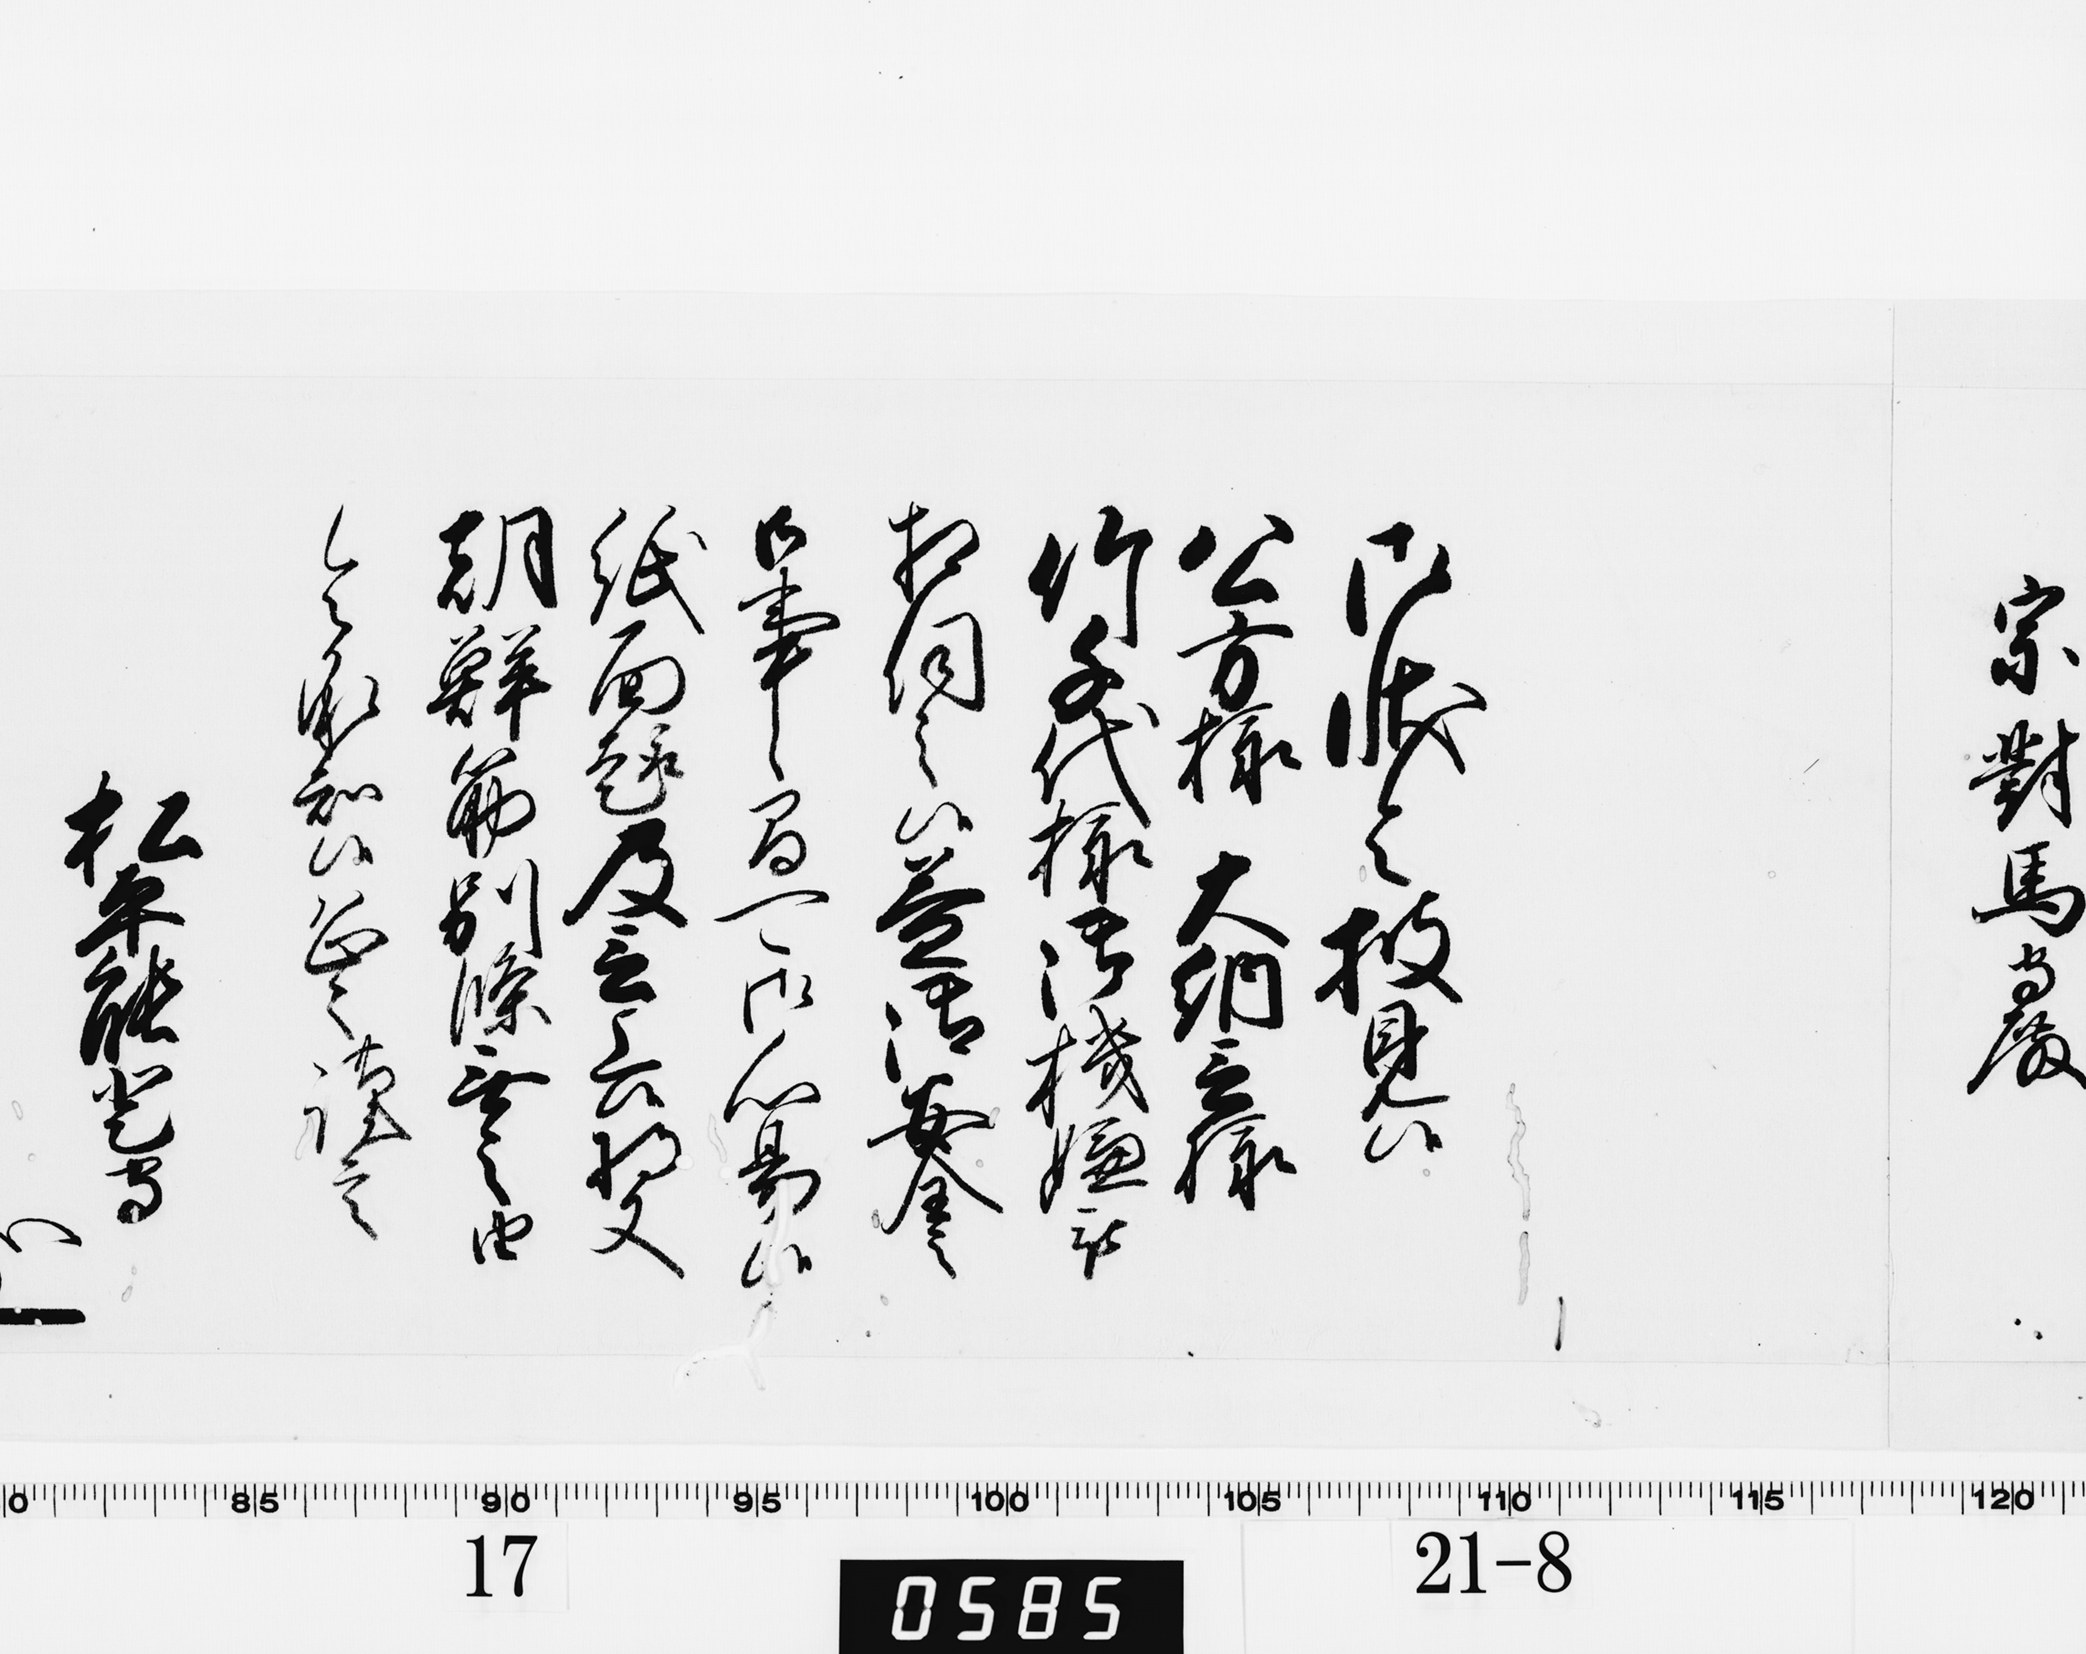 宗對馬守殿
御状令披見候
公方様 大納言様
竹千代様御機嫌被
相伺之候益御安全之
御事候間可御心易候
紙面趣及言上候将又
朝鮮筋別條無之由
令承知候恐々謹言
松平能登守
80 85 90 95 100 105 110 115 120
17
0585
21-8